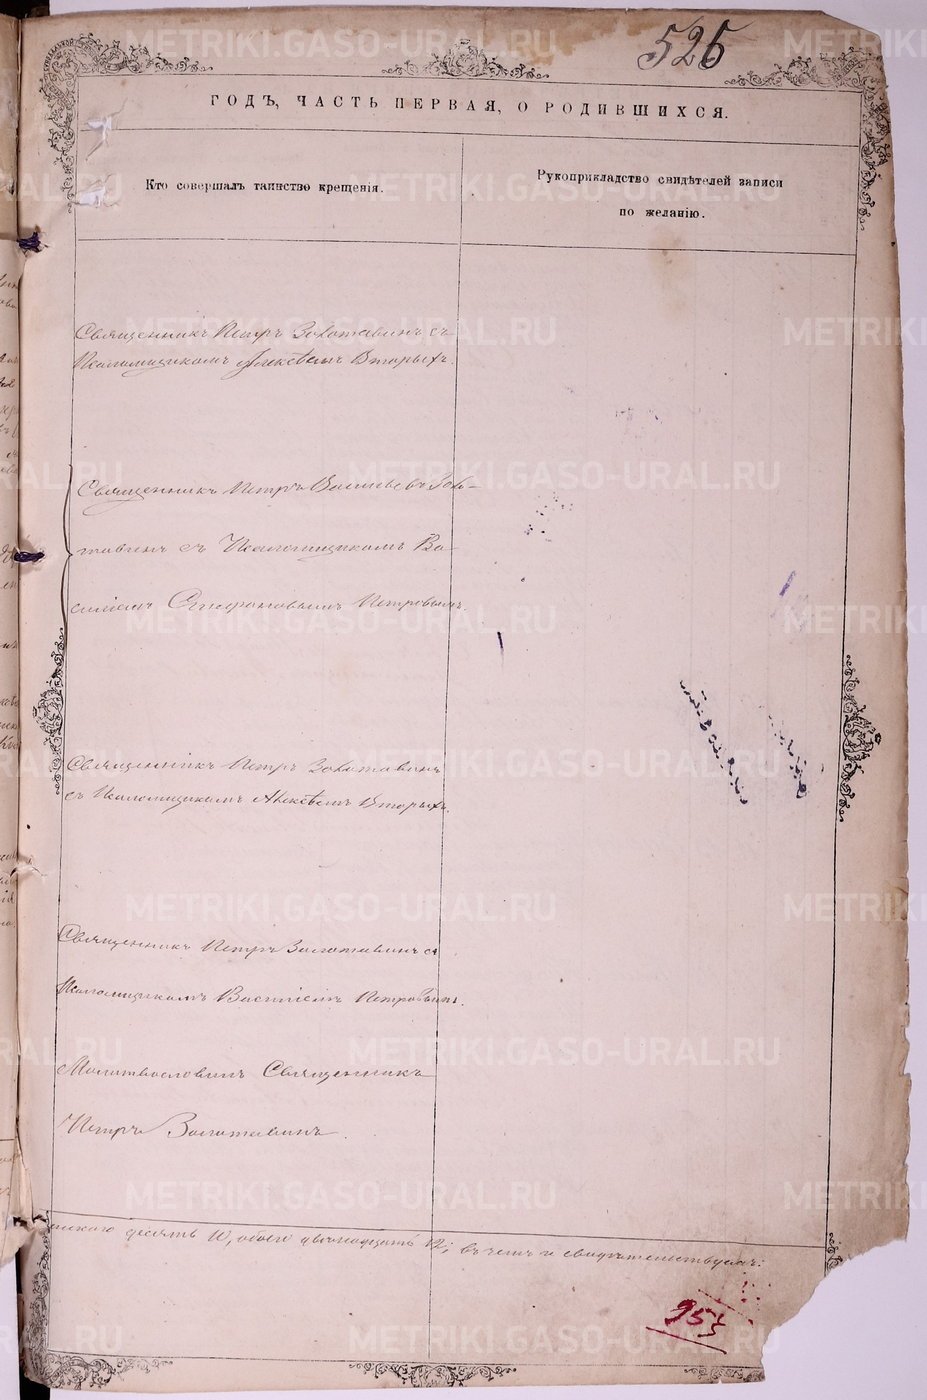 525
ГОДЪ, ЧАСТЬ ПЕРВАЯ, О РОДИВШИХСЯ.
Кто совершалъ таинство крещенія.
Рукоприкладство свидѣтелей записи
по желанію.
Священникъ Петръ Золотавинъ съ
Псаломщикомъ Алексѣемъ Вторыхъ.
Священникъ Петръ Васильевъ Золо-
тавинъ съ Псаломщикомъ Ва-
силіемъ Петровымъ.
Священникъ Петръ Золотавинъ
съ Псаломщикомъ Алексѣемъ Вторыхъ.
Священникъ Петръ Золотавинъ съ
Псаломщикомъ Василіемъ Петровымъ.
Молитвословилъ Священникъ
Петръ Золотавинъ.
десять 10, обоего двѣнадцать 12; въ чемъ и свидѣтельствуемъ:
953
METRIKI.GASO-URAL.RU